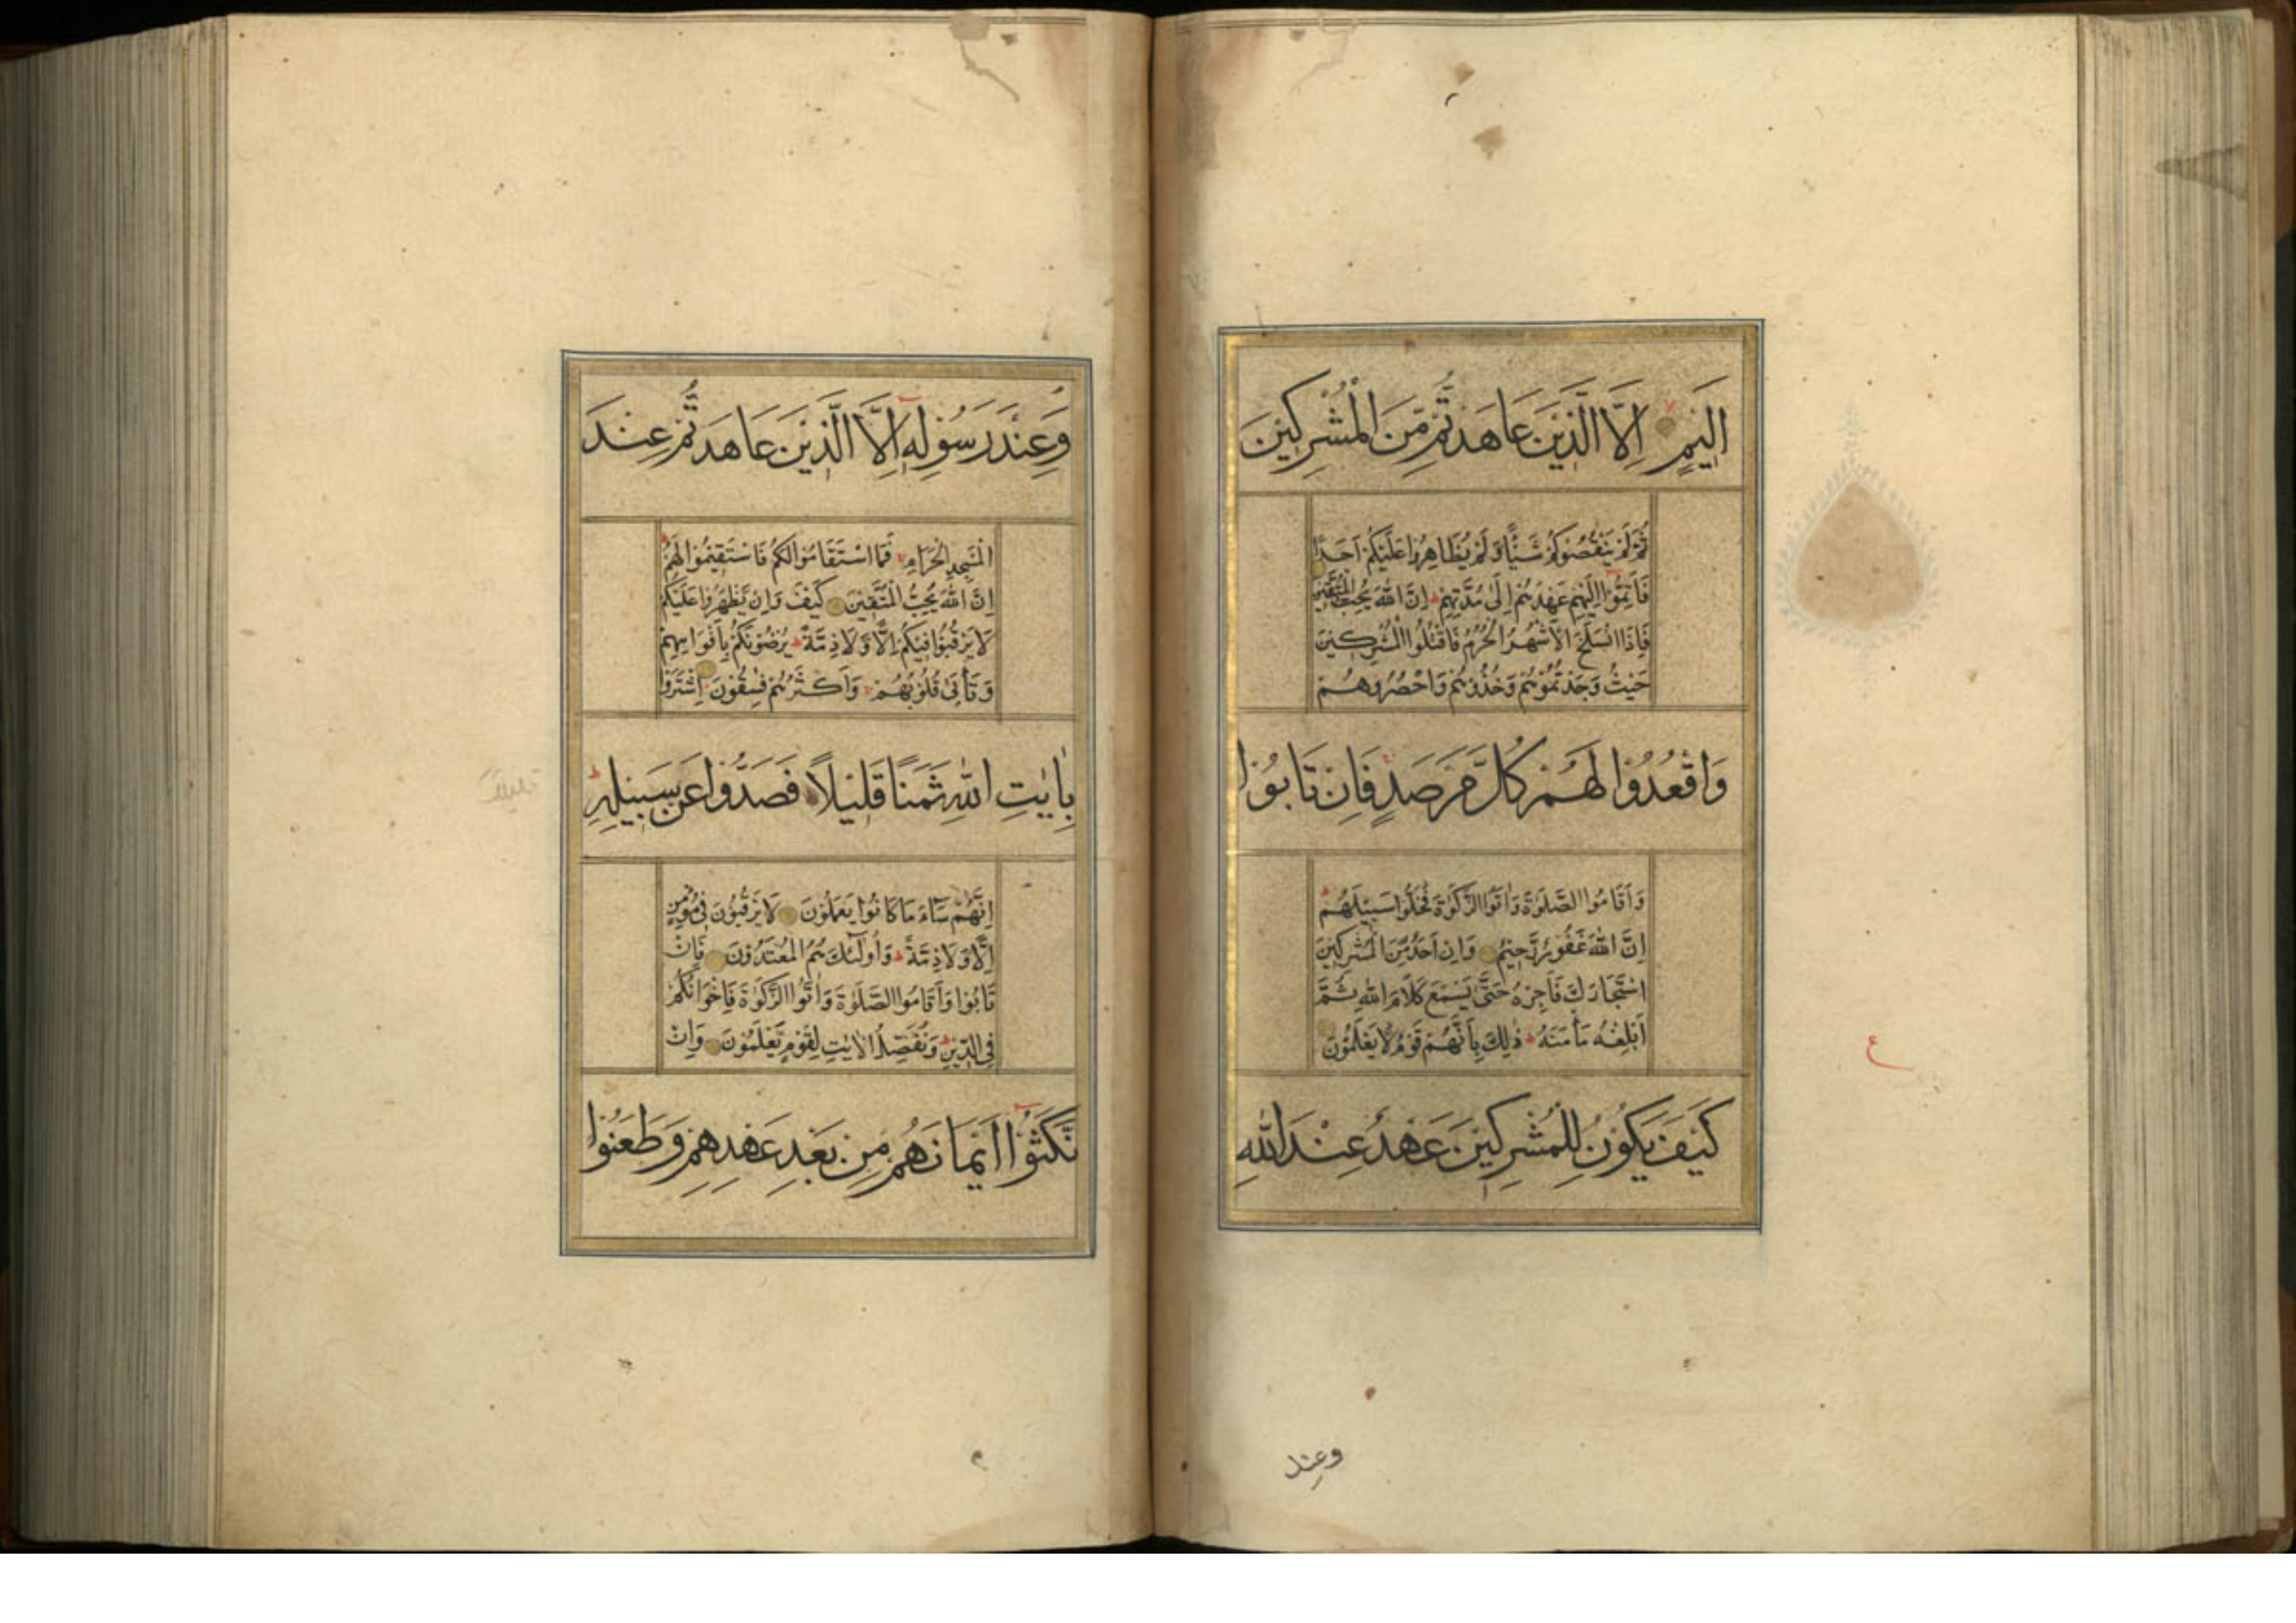 اَلِيْمٍ اِلَّا الَّذِيْنَ عَاهَدْتُّمْ مِّنَ الْمُشْرِكِيْنَ
ثُمَّ لَمْ يَنْقُصُوْكُمْ شَيْئًا وَّلَمْ يُظَاهِرُوْا عَلَيْكُمْ اَحَدًا
فَاَتِمُّوْا اِلَيْهِمْ عَهْدَهُمْ اِلٰى مُدَّتِهِمْ اِنَّ اللّٰهَ يُحِبُّ الْمُتَّقِيْنَ
فَاِذَا انْسَلَخَ الْاَشْهُرُ الْحُرُمُ فَاقْتُلُوا الْمُشْرِكِيْنَ
حَيْثُ وَجَدْتُمُوْهُمْ وَخُذُوْهُمْ وَاحْصُرُوْهُمْ
وَاقْعُدُوْا لَهُمْ كُلَّ مَرْصَدٍ فَاِنْ تَابُوْا
وَاَقَامُوا الصَّلٰوةَ وَاٰتَوُا الزَّكٰوةَ فَخَلُّوْا سَبِيْلَهُمْ
اِنَّ اللّٰهَ غَفُوْرٌ رَّحِيْمٌ وَاِنْ اَحَدٌ مِّنَ الْمُشْرِكِيْنَ
اسْتَجَارَكَ فَاَجِرْهُ حَتّٰى يَسْمَعَ كَلَامَ اللّٰهِ ثُمَّ
اَبْلِغْهُ مَاْمَنَهُ ذٰلِكَ بِاَنَّهُمْ قَوْمٌ لَّا يَعْلَمُوْنَ
كَيْفَ يَكُوْنُ لِلْمُشْرِكِيْنَ عَهْدٌ عِنْدَ اللّٰهِ
ع
وعند
وَعِنْدَ رَسُوْلِهٖ اِلَّا الَّذِيْنَ عَاهَدْتُّمْ عِنْدَ
الْمَسْجِدِ الْحَرَامِ فَمَا اسْتَقَامُوْا لَكُمْ فَاسْتَقِيْمُوْا لَهُمْ
اِنَّ اللّٰهَ يُحِبُّ الْمُتَّقِيْنَ كَيْفَ وَاِنْ يَّظْهَرُوْا عَلَيْكُمْ
لَا يَرْقُبُوْا فِيْكُمْ اِلًّا وَّلَا ذِمَّةً يُرْضُوْنَكُمْ بِاَفْوَاهِهِمْ
وَتَاْبٰى قُلُوْبُهُمْ وَاَكْثَرُهُمْ فٰسِقُوْنَ اِشْتَرَوْا
بِاٰيٰتِ اللّٰهِ ثَمَنًا قَلِيْلًا فَصَدُّوْا عَنْ سَبِيْلِهٖ
اِنَّهُمْ سَآءَ مَا كَانُوْا يَعْمَلُوْنَ لَا يَرْقُبُوْنَ فِيْ مُؤْمِنٍ
اِلًّا وَّلَا ذِمَّةً وَاُولٰٓئِكَ هُمُ الْمُعْتَدُوْنَ فَاِنْ
تَابُوْا وَاَقَامُوا الصَّلٰوةَ وَاٰتَوُا الزَّكٰوةَ فَاِخْوَانُكُمْ
فِي الدِّيْنِ وَنُفَصِّلُ الْاٰيٰتِ لِقَوْمٍ يَّعْلَمُوْنَ وَاِنْ
نَّكَثُوْٓا اَيْمَانَهُمْ مِنْ بَعْدِ عَهْدِهِمْ وَطَعَنُوْا